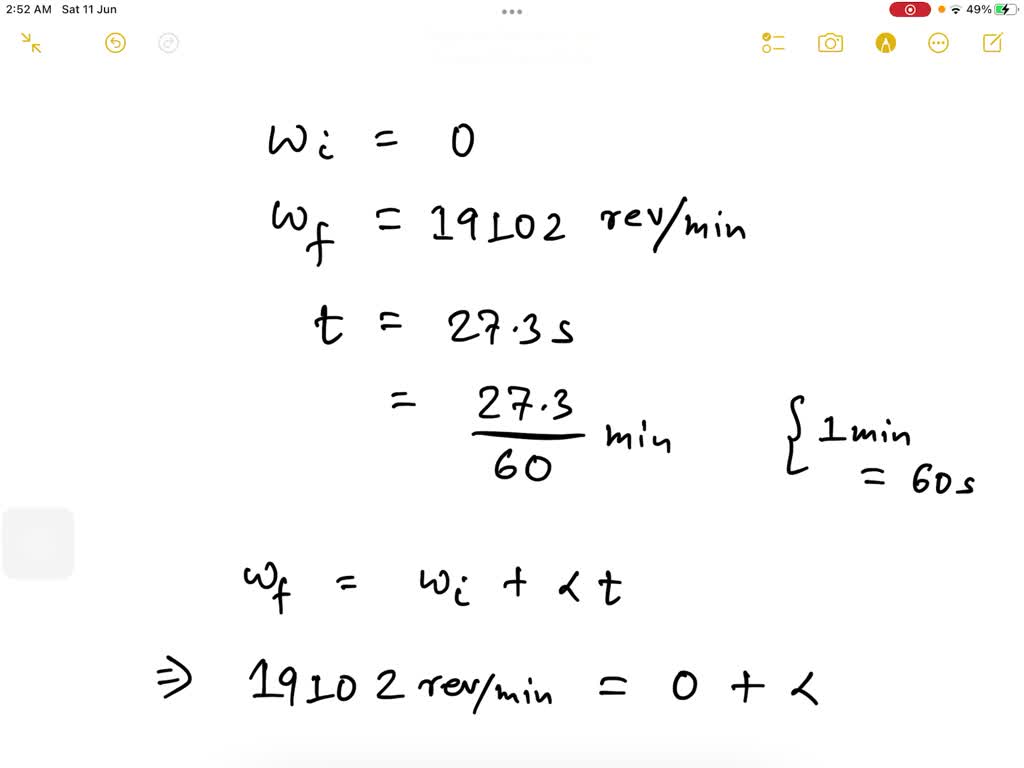 2:52 AM Sat 11 Jun
49%
ωi = 0
ωf = 19102 rev/min
t = 27.3 s
= 27.3/60 min
{ 1 min
= 60 s
ωf = ωi + α t
⇒ 19102 rev/min = 0 + α